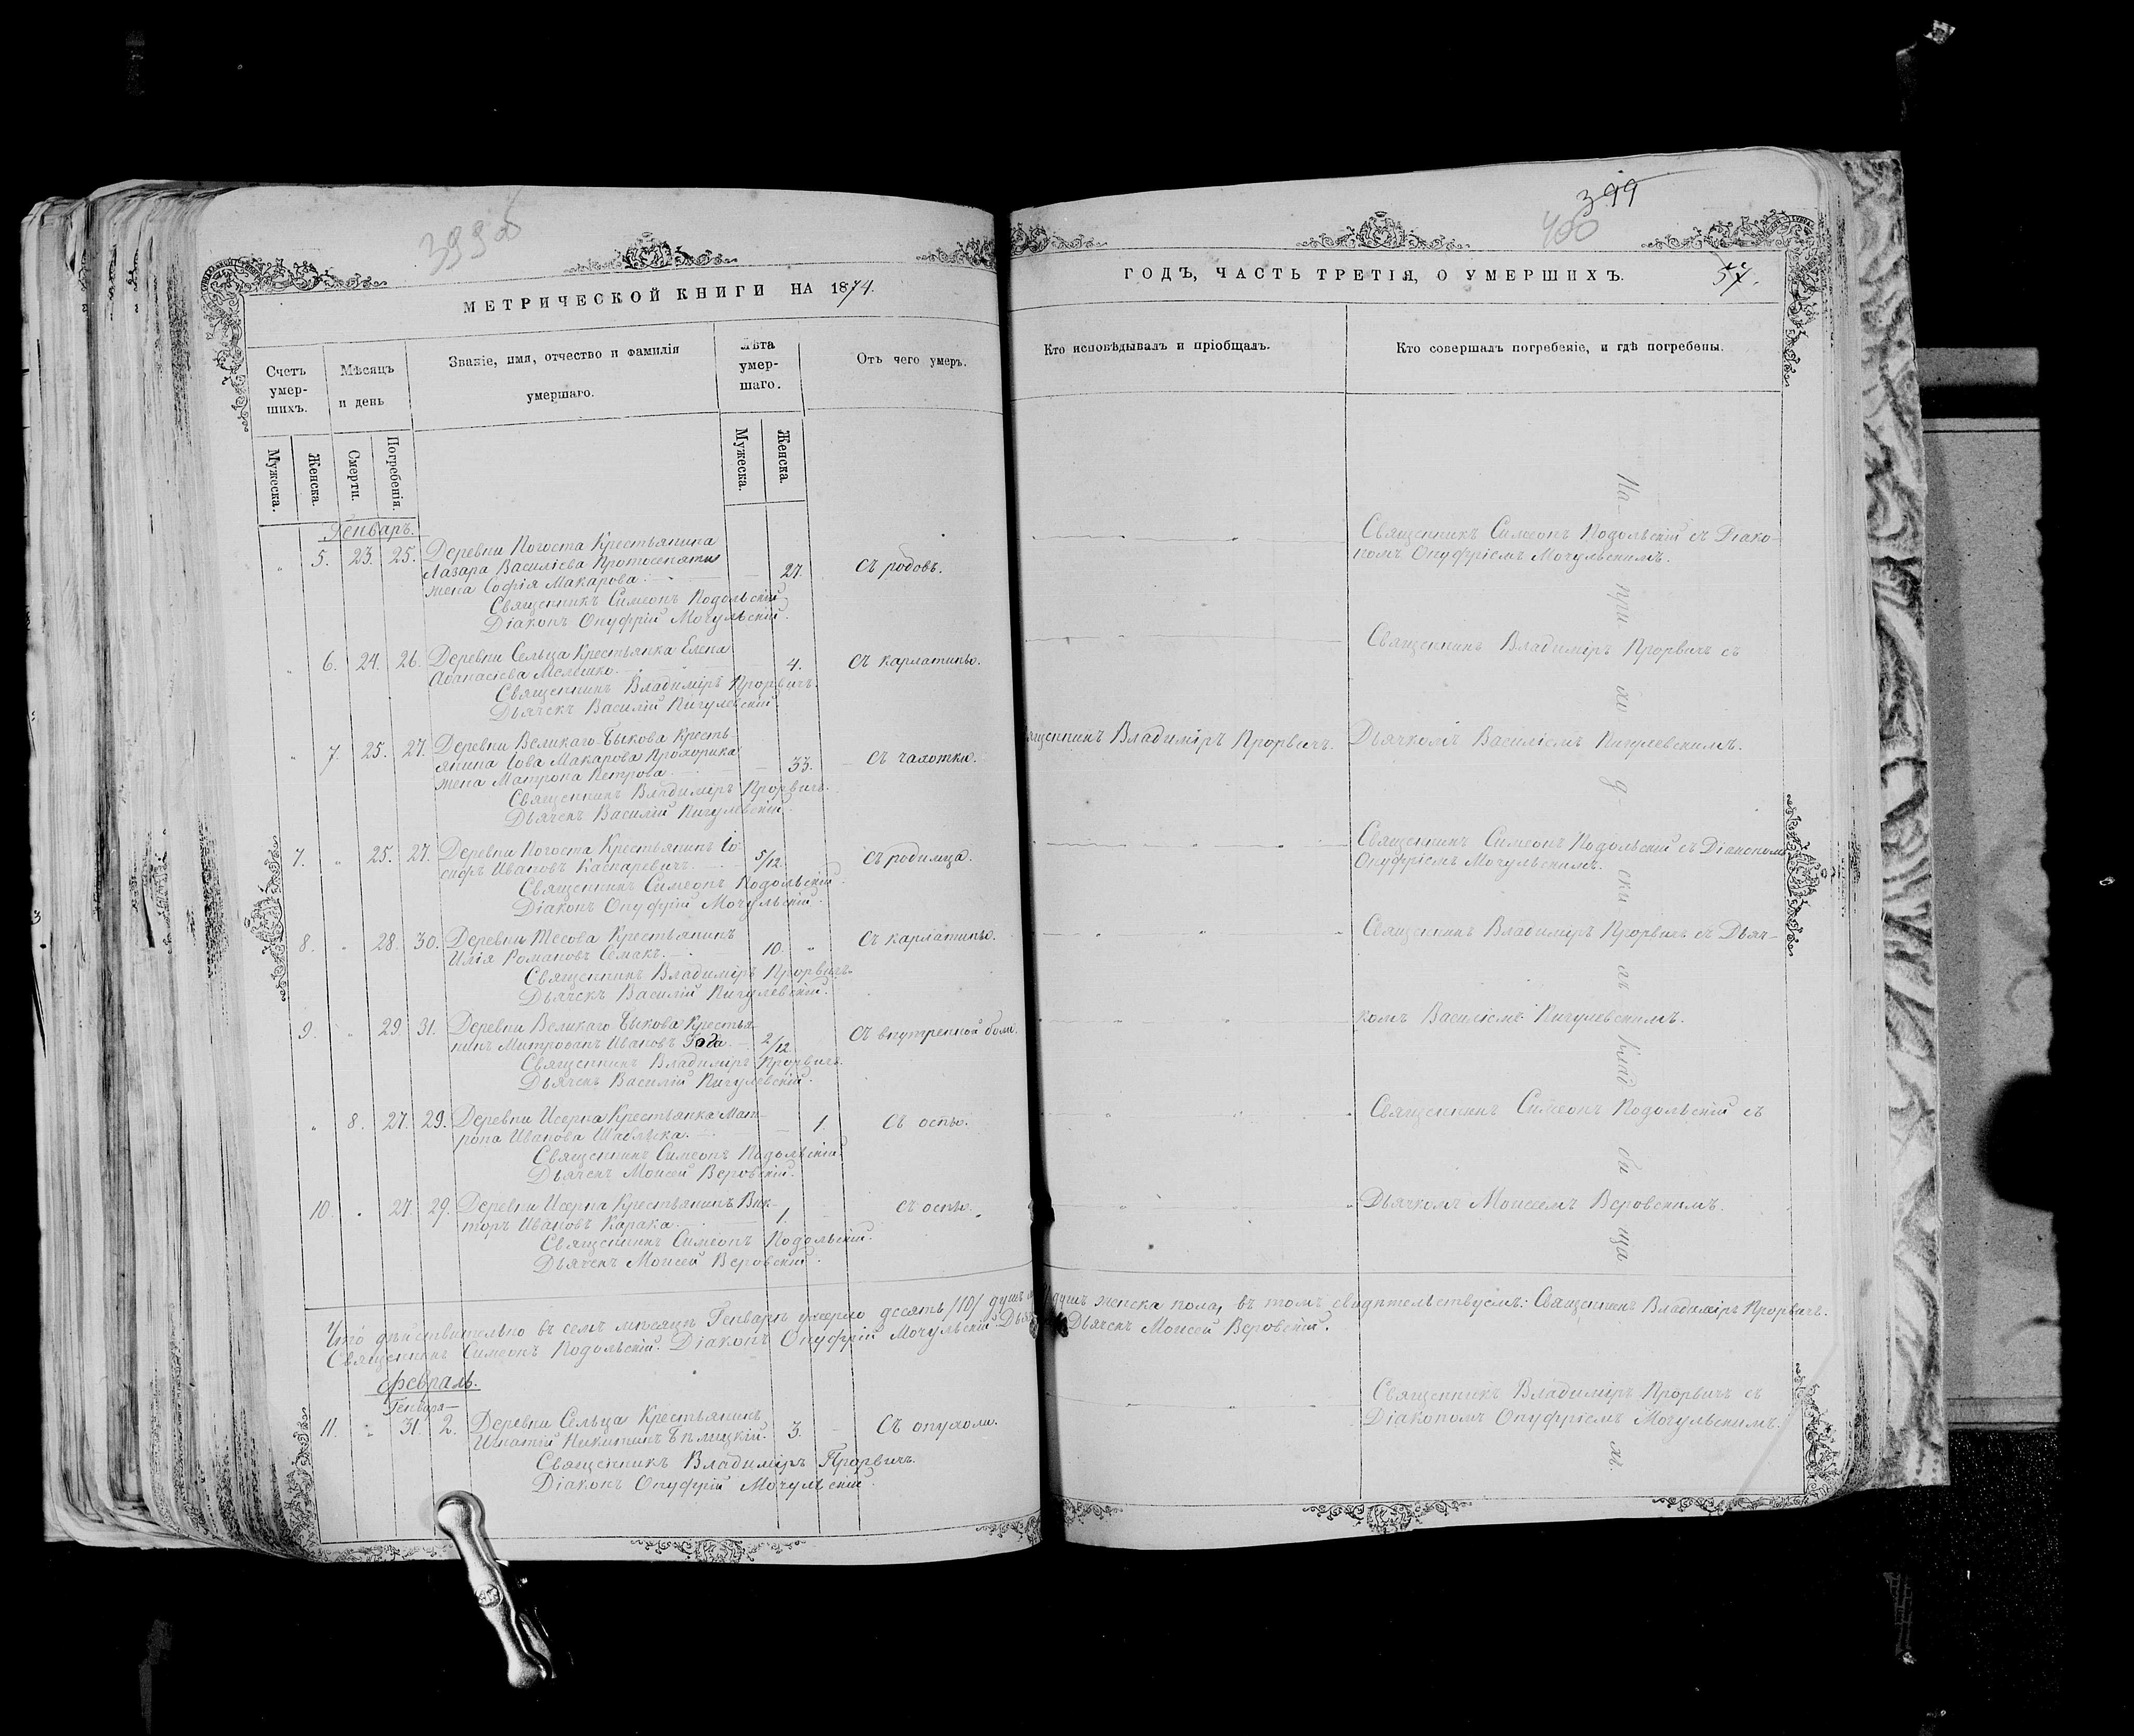 399об
МЕТРИЧЕСКОЙ КНИГИ НА 1874.
Счетъ умер-шихъ.
Мѣсяцъ и день
Званіе, имя, отчество и фамилія умершаго.
Лѣта умер-шаго.
Отъ чего умеръ.
Мужеска.
Женска.
Смерти.
Погребенія.
Мужеска.
Женска.
Генварь.
5. 23. 25. Деревни Погоста Крестьянина
Лазара Василіева
жена Софія Макарова. 27. Съ родовъ.
Священникъ Симеонъ Подольскій
Діаконъ Онуфрій Мочульскій.
6. 24. 26. Деревни Сельца Крестьянка Елена
Аѳанасіева Мелешко. 4. Съ карлатины.
Священникъ Владиміръ Прорвичъ.
Дьячекъ Василій Пигулевскій.
7. 25. 27. Деревни Великаго-Быкова Кресть-
янина Іова Макарова Прохорика
жена Матрона Петрова. 33. Съ чахотки.
Священникъ Владиміръ Прорвичъ.
Дьячекъ Василій Пигулевскій.
7. 25. 27. Деревни Погоста Крестьянинъ Іо-
сифъ Ивановъ Каспаревичъ. 5/12. Съ родимца.
Священникъ Симеонъ Подольскій.
Діаконъ Онуфрій Мочульскій.
8. 28. 30. Деревни Тесова Крестьянинъ
Илія Романовъ Семакъ. 10. Съ карлатины.
Священникъ Владиміръ Прорвичъ.
Дьячекъ Василій Пигулевскій.
9. 29. 31. Деревни Великаго Быкова Крестья-
нинъ Митрофанъ Ивановъ 2/12. Съ внутренной боли.
Священникъ Владиміръ Прорвичъ.
Дьячекъ Василій Пигулевскій.
8. 27. 29. Деревни Исерна Крестьянка Мат-
рона Иванова 1. Съ оспы.
Священникъ Симеонъ Подольскій.
Дьячекъ Моисей Веровскій.
10. 27. 29. Деревни Исерна Крестьянинъ Вик-
торъ Ивановъ Карака. 1. Съ оспы.
Священникъ Симеонъ Подольскій.
Дьячекъ Моисей Веровскій.
Что дѣйствительно въ семъ мѣсяцѣ Генварѣ умерло десять /10/ душъ
Священникъ Симеонъ Подольскій. Діаконъ Онуфрій Мочульскій.
Февраль.
Генваря
11. 31. 2. Деревни Сельца Крестьянинъ
Игнатій Никитинъ Бѣлицкій. 3. Съ опухоли.
Священникъ Владиміръ Прорвичъ.
Діаконъ Онуфрій Мочульскій.
399
400
57.
ГОДЪ, ЧАСТЬ ТРЕТІЯ, О УМЕРШИХЪ.
Кто исповѣдывалъ и пріобщалъ.
Кто совершалъ погребеніе, и гдѣ погребены.
Священникъ Симеонъ Подольскій съ Діако-
номъ Онуфріемъ Мочульскимъ.
Священникъ Владиміръ Прорвичъ съ
Священникъ Владиміръ Прорвичъ. Дьячкомъ Василіемъ Пигулевскимъ.
Священникъ Симеонъ Подольскій съ Діакономъ
Онуфріемъ Мочульскимъ.
Священникъ Владиміръ Прорвичъ съ Дьяч-
комъ Василіемъ Пигулевскимъ.
Священникъ Симеонъ Подольскій съ
Дьячкомъ Моисеемъ Веровскимъ.
душъ женска пола, въ томъ свидѣтельствуемъ: Священникъ Владиміръ Прорвичъ.
Дьячекъ Моисей Веровскій.
Священникъ Владиміръ Прорвичъ съ
Діакономъ Онуфріемъ Мочульскимъ.
На при хо д- ски хъ клад би ща хъ.